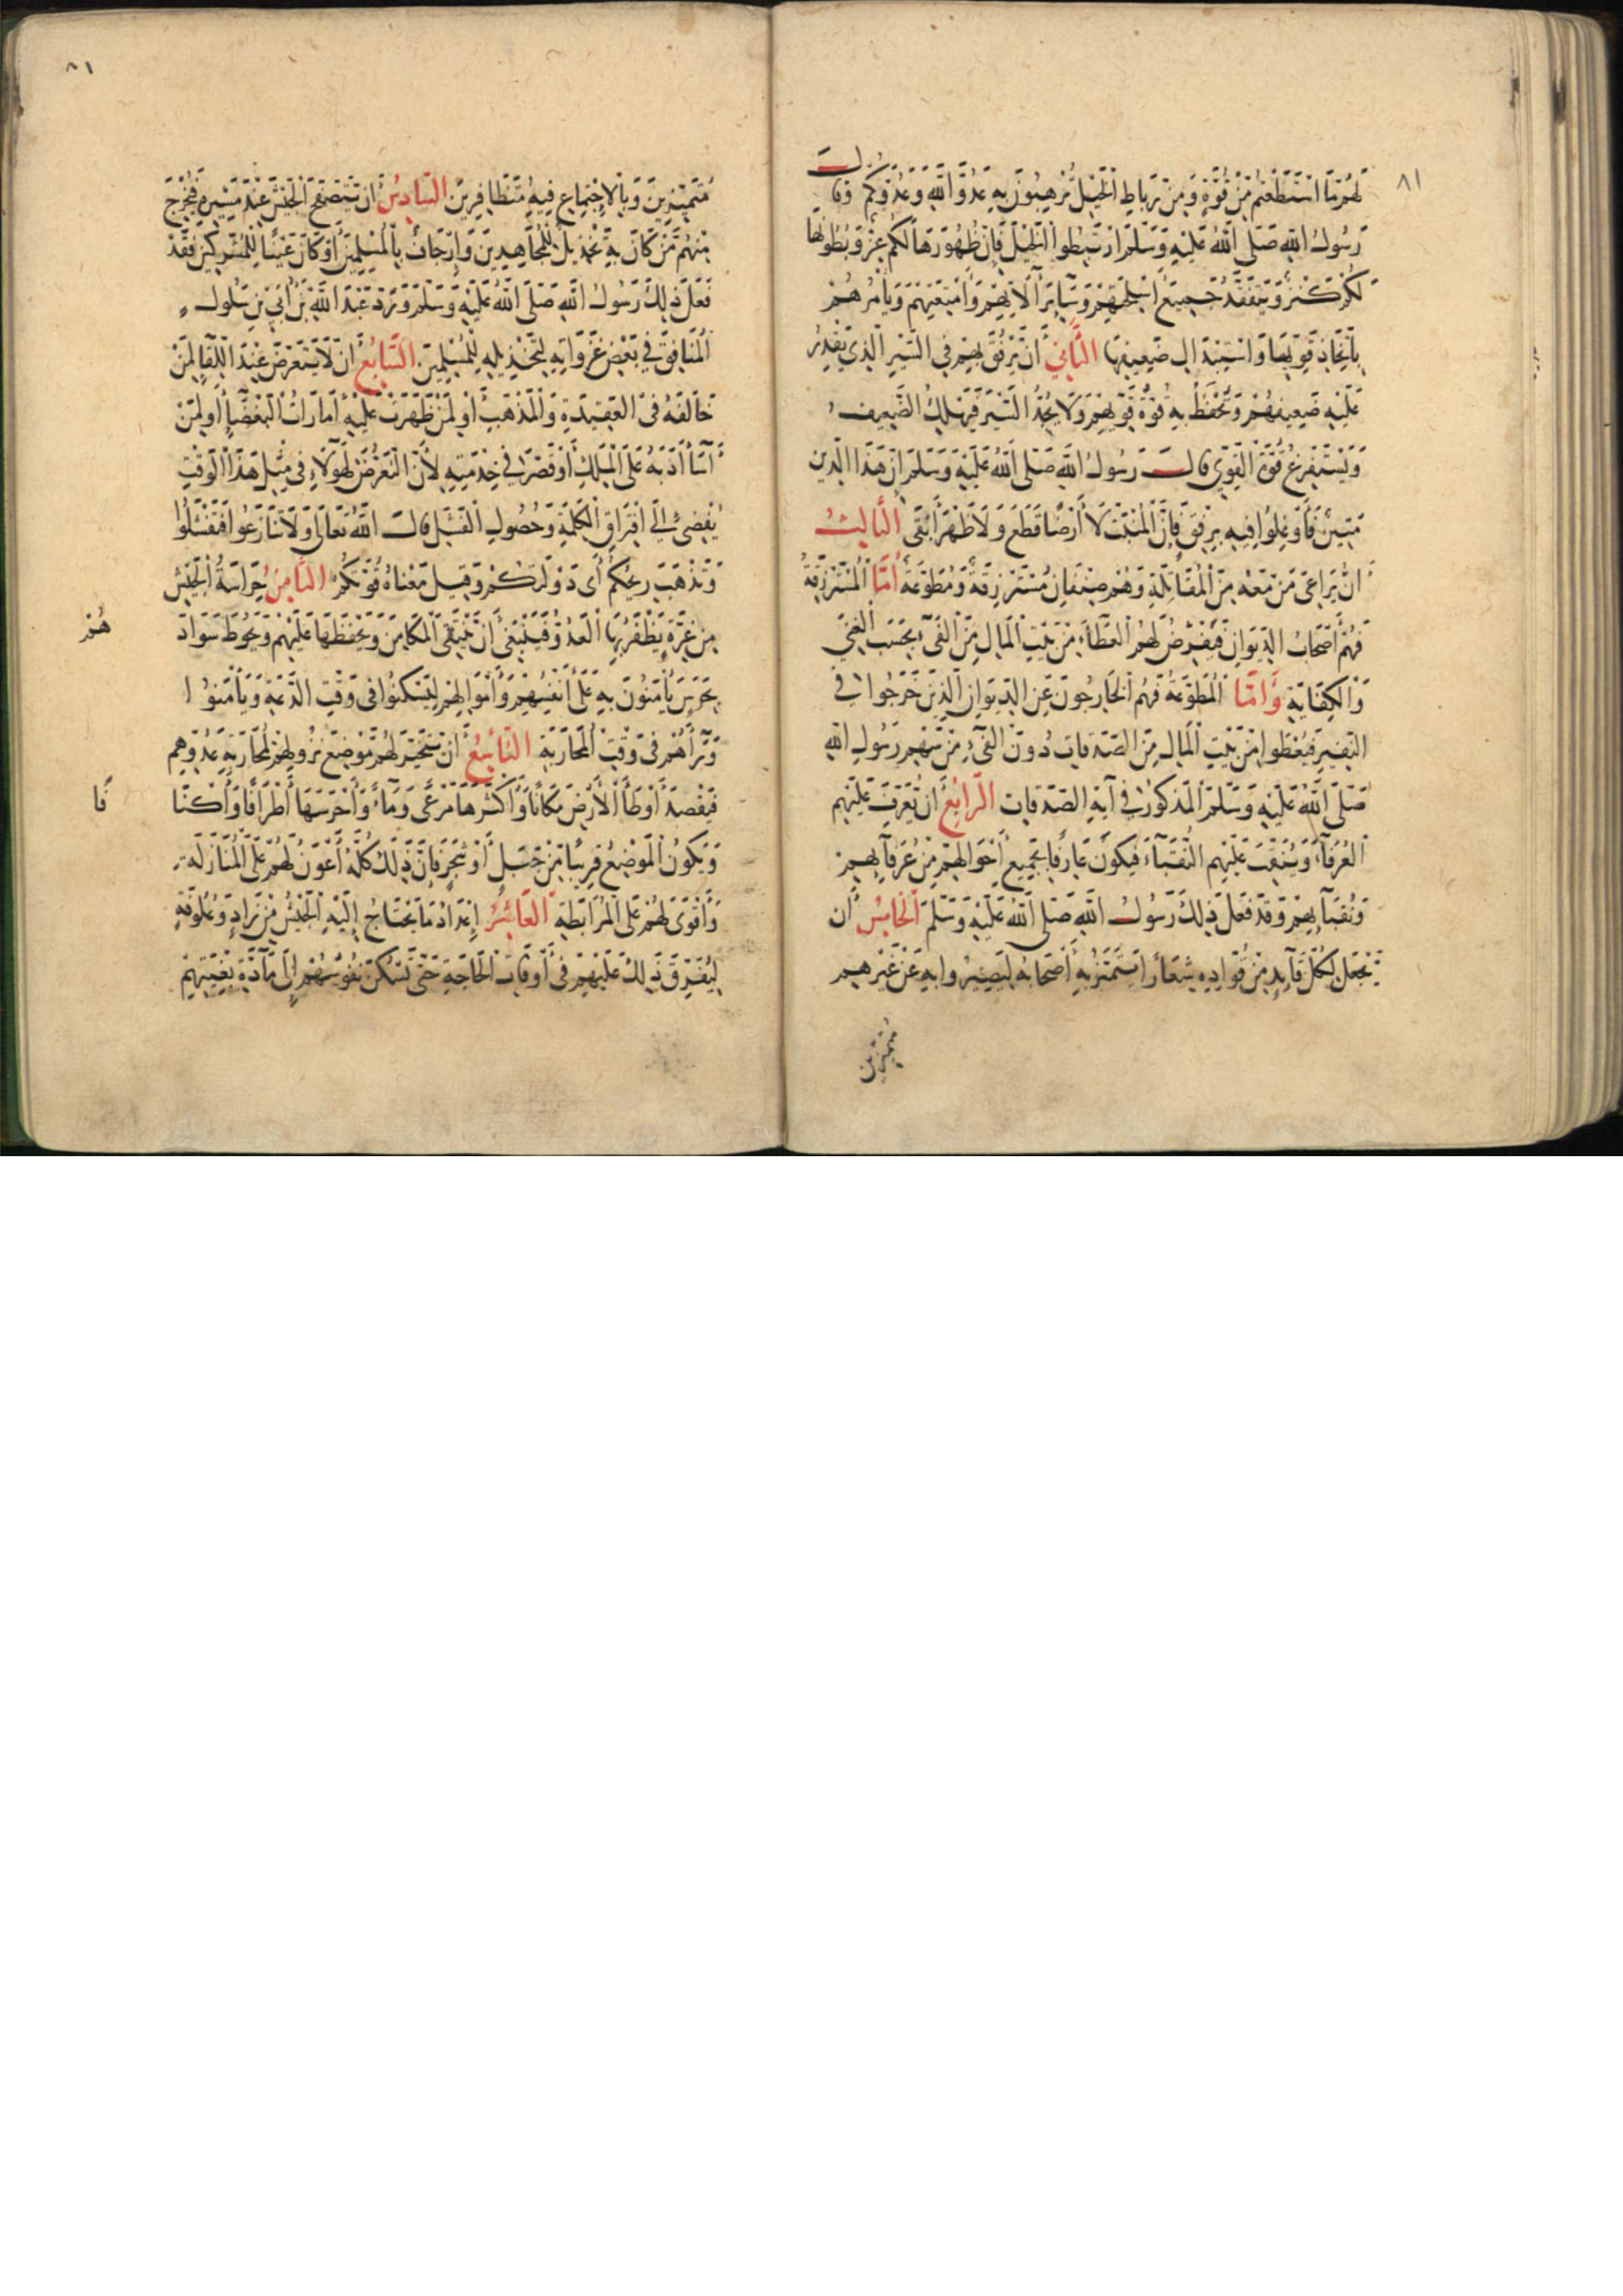 ٨١
لَهُمْ مَا اسْتَطَعْتُمْ مِنْ قُوَّةٍ وَمِنْ رِبَاطِ الْخَيْلِ تُرْهِبُونَ بِهِ عَدُوَّ اللَّهِ وَعَدُوَّكُمْ وَقَالَ
رَسُولُ اللَّهِ صَلَّى اللَّهُ عَلَيْهِ وَسَلَّمَ ارْتَبِطُوا الْخَيْلَ فَإِنَّ ظُهُورَهَا لَكُمْ عِزٌّ وَبُطُونَهَا
لَكُمْ كَنْزٌ وَيَتَفَقَّدُ جَمِيعَ أَسْلِحَتِهِمْ وَسَايِرَ آلَاتِهِمْ وَأَمْتِعَتِهِمْ وَيَأْمُرُهُمْ
بِاتِّخَاذِ قَوِيِّهَا وَاسْتِبْدَالِ ضَعِيفِهَا الثَّانِي أَنْ يَرْفُقَ بِهِمْ فِي السَّيْرِ الَّذِي يَقْدِرُ
عَلَيْهِ ضَعِيفُهُمْ وَتُحْفَظُ بِهِ قُوَّةُ قَوِيِّهِمْ وَلَا يُجِدُّ السَّيْرَ فَيَهْلِكُ الضَّعِيفُ
وَيَسْتَفْرِغُ قُوَّةَ الْقَوِيِّ قَالَ رَسُولُ اللَّهِ صَلَّى اللَّهُ عَلَيْهِ وَسَلَّمَ إِنَّ هَذَا الدِّينَ
مَتِينٌ فَأَوْغِلُوا فِيهِ بِرِفْقٍ فَإِنَّ الْمُنْبَتَّ لَا أَرْضًا قَطَعَ وَلَا ظَهْرًا أَبْقَى الثَّالِثُ
أَنْ يُرَاعِيَ مَنْ مَعَهُ مِنَ الْمُقَاتِلَةِ وَهُمْ صِنْفَانِ مُسْتَرْزِقَةٌ وَمُطَوِّعَةٌ أَمَّا الْمُسْتَرْزِقَةُ
فَهُمْ أَصْحَابُ الدِّيوَانِ فَيُفْرَضُ لَهُمُ الْعَطَاءُ مِنْ بَيْتِ الْمَالِ مِنَ الْفَيْءِ بِحَسَبِ الْغِنَى
وَالْكِفَايَةِ وَأَمَّا الْمُطَوِّعَةُ فَهُمُ الْخَارِجُونَ عَنِ الدِّيوَانِ الَّذِينَ خَرَجُوا فِي
النَّفِيرِ فَيُعْطَوا مِنْ بَيْتِ الْمَالِ مِنَ الصَّدَقَاتِ دُونَ الْفَيْءِ مِنْ سَهْمِ رَسُولِ اللَّهِ
صَلَّى اللَّهُ عَلَيْهِ وَسَلَّمَ الْمَذْكُورُ فِي آيَةِ الصَّدَقَاتِ الرَّابِعُ أَنْ يُعَرِّفَ عَلَيْهِمُ
الْعُرَفَاءَ وَيُنَقِّبَ عَلَيْهِمِ النُّقَبَاءَ فَيَكُونَ عَارِفًا بِجَمِيعِ أَحْوَالِهِمْ مِنْ عُرَفَآيِهِمْ
وَنُقَبَآيِهِمْ وَقَدْ فَعَلَ ذَلِكَ رَسُولُ اللَّهِ صَلَّى اللَّهُ عَلَيْهِ وَسَلَّمَ الْخَامِسُ أَنْ
يَجْعَلَ لِكُلِّ قَآيِدٍ مِنْ قُوَّادِهِ شِعَارًا يَتَمَيَّزُ بِهِ أَصْحَابُهُ لِيَصِيرُوا بِهِ عَنْ غَيْرِهِمْ
مُتَمَيِّزِينَ
٨١
مُتَمَيِّزِينَ وَبِالِاجْتِمَاعِ فِيهِ مُتَظَافِرِينَ السَّادِسُ أَنْ يَتَصَفَّحَ الْجَيْشَ عِنْدَ مَسِيرِهِ فَيُخْرِجَ
مِنْهُمْ مَنْ كَانَ بِهِ تَخْذِيلٌ لِلْمُجَاهِدِينَ وَإِرْجَافٌ بِالْمُسْلِمِينَ أَوْ كَانَ عَيْنًا لِلْمُشْرِكِينَ فَقَدْ
فَعَلَ ذَلِكَ رَسُولُ اللَّهِ صَلَّى اللَّهُ عَلَيْهِ وَسَلَّمَ وَرَدَّ عَبْدَ اللَّهِ بْنَ أُبَيِّ بْنِ سَلُولٍ
الْمُنَافِقَ فِي بَعْضِ غَزَوَاتِهِ لِتَخْذِيلِهِ لِلْمُسْلِمِينَ السَّابِعُ أَنْ لَا يَتَعَرَّضَ عِنْدَ اللِّقَا لِمَنْ
خَالَفَهُ فِي الْعَقِيدَةِ وَالْمَذْهَبِ أَوْ لِمَنْ ظَهَرَتْ عَلَيْهِ أَمَارَاتُ الْبَغْضَاءِ أَوْ لِمَنْ
أَسَاءَ أَدَبَهُ عَلَى الْمَلِكِ أَوْ قَصَّرَ فِي خِدْمَتِهِ لِأَنَّ التَّعَرُّضَ لِهَؤُلَاءِ فِي مِثْلِ هَذَا الْوَقْتِ
يُفْضِي إِلَى افْتِرَاقِ الْكَلِمَةِ وَحُصُولِ الْفَشَلِ قَالَ اللَّهُ تَعَالَى وَلَا تَنَازَعُوا فَتَفْشَلُوا
وَتَذْهَبَ رِيحُكُمْ أَي دَوْلَتَكُمْ وَقِيلَ مَعْنَاهُ قُوَّتُكُمْ الثَّامِنُ حِرَاسَةُ الْجَيْشِ
مِنْ غِرَّةٍ يَظْفَرُ بِهَا الْعَدُوُّ فَيَنْبَغِي أَنْ يَتَّقِيَ الْمَكَامِنَ وَيَحْفَظَهَا عَلَيْهِمْ وَيَحُوطَ سَوَادَ
هُمْ
بِحَرَسٍ يَأْمَنُونَ بِهِ عَلَى أَنْفُسِهِمْ وَأَمْوَالِهِمْ لِيَسْكُنُوا فِي وَقْتِ الدَّعَةِ وَيَأْمَنُوا
وَرَاءَهُمْ فِي وَقْتِ الْمُحَارَبَةِ التَّاسِعُ أَنْ يَتَخَيَّرَ لَهُمْ مَوْضِعَ نُزُولِهِمْ لِمُحَارَبَةِ عَدُوِّهِمْ
فَيَقْصِدَ أَوْطَأَ الْأَرْضِ مَكَانًا وَأَكْثَرَهَا مَرْعًى وَمَاءً وَأَحْرَسَهَا أَطْرَافًا وَأَكْنَا
فًا
وَيَكُونُ الْمَوْضِعُ قَرِيبًا مِنْ جَبَلٍ أَوْ شَجَرٍ فَإِنَّ ذَلِكَ كُلَّهُ أَعْوَنُ لَهُمْ عَلَى الْمُنَازَلَةِ
وَأَقْوَى لَهُمْ عَلَى الْمُرَابَطَةِ الْعَاشِرُ إِعْدَادُ مَا يَحْتَاجُ إِلَيْهِ الْجَيْشُ مِنْ زَادٍ وَعُلُوفَةٍ
لِيُفَرِّقَ ذَلِكَ عَلَيْهِمْ فِي أَوْقَاتِ الْحَاجَةِ حَتَّى تَسْكُنَ نُفُوسُهُمْ إِلَى مَآدَّةٍ